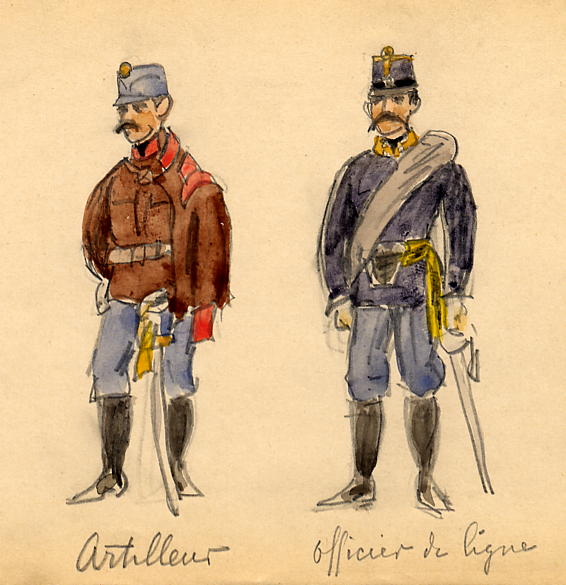 Artilleur
officier de ligne